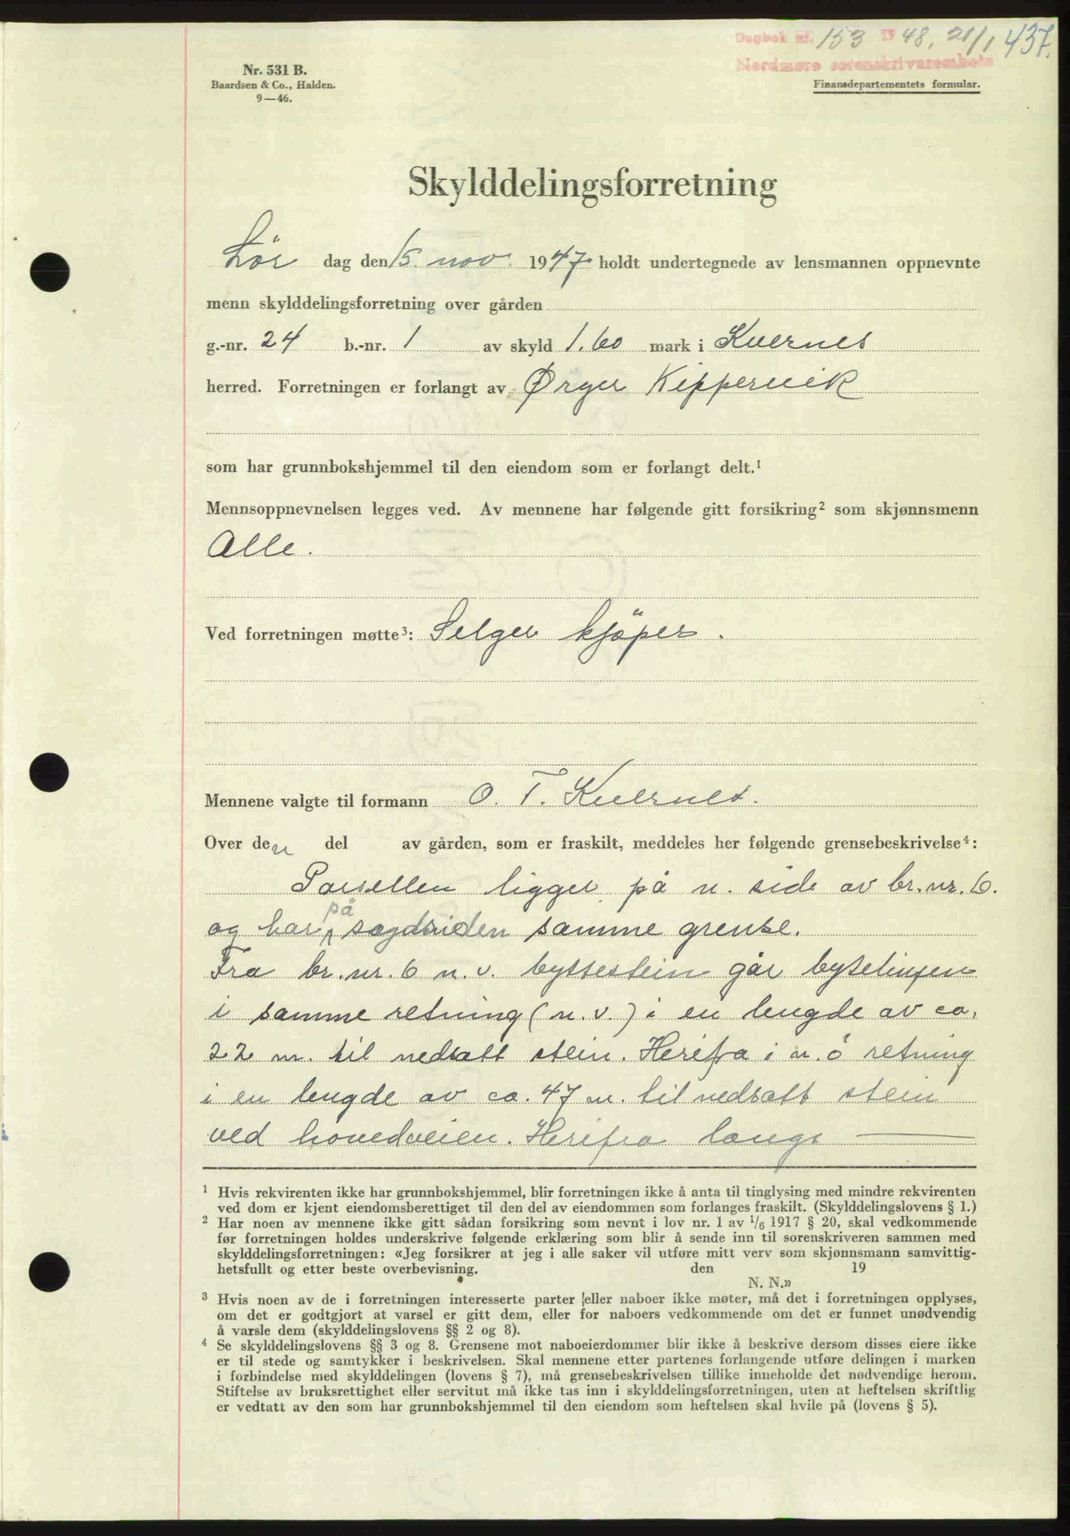 Dagbok nr. 153 19 48, 21/1 437.
Nordmøre sorenskrivarembete
Nr. 531 B.
Baardsen & Co., Halden.
9—46.
Finansdepartementets formular.
Skylddelingsforretning
Lør dag den 15. nov. 1947 holdt undertegnede av lensmannen oppnevnte
menn skylddelingsforretning over gården
g.-nr. 24 b.-nr. 1 av skyld 1.60 mark i Kvernes
herred. Forretningen er forlangt av Ørger Kippervik
som har grunnbokshjemmel til den eiendom som er forlangt delt.¹
Mennsoppnevnelsen legges ved. Av mennene har følgende gitt forsikring² som skjønnsmenn
Alle.
Ved forretningen møtte³: Selger kjöper.
Mennene valgte til formann O. T. Kvernes.
Over den del av gården, som er fraskilt, meddeles her følgende grensebeskrivelse⁴:
Parsellen ligger på n. side av br. nr. 6.
og har på samme grense.
Fra br. nr. 6 n. v. byttestein går bytelinjen
i samme retning (n. v.) i en lengde av ca.
22 m. til nedsatt stein. Herifra i n. ö retning
i en lengde av ca. 47 m. til nedsatt stein
ved hovedveien. Herifra langs —
¹ Hvis rekvirenten ikke har grunnbokshjemmel, blir forretningen ikke å anta til tinglysing med mindre rekvirenten
ved dom er kjent eiendomsberettiget til den del av eiendommen som forlanges fraskilt. (Skylddelingslovens § 1.)
² Har noen av mennene ikke gitt sådan forsikring som nevnt i lov nr. 1 av 1/6 1917 § 20, skal vedkommende
før forretningen holdes underskrive følgende erklæring som blir å sende inn til sorenskriveren sammen med
skylddelingsforretningen: «Jeg forsikrer at jeg i alle saker vil utføre mitt verv som skjønnsmann samvittig-
hetsfullt og etter beste overbevisning. den 19
N. N.»
³ Hvis noen av de i forretningen interesserte parter eller naboer ikke møter, må det i forretningen opplyses,
om det er godtgjort at varsel er gitt dem, eller for naboers vedkommende om det er funnet unødvendig
å varsle dem (skylddelingslovens §§ 2 og 8).
⁴ Se skylddelingslovens §§ 3 og 8. Grensene mot naboeierdommer blir ikke å beskrive dersom disses eiere ikke
er til stede og samtykker i beskrivelsen. Skal mennene etter partenes forlangende utføre delingen i marken
i forbindelse med skylddelingen (lovens § 7), må grensebeskrivelsen tillike inneholde det nødvendige herom.
Stiftelse av bruksrettighet eller servitut må ikke tas inn i skylddelingsforretningen, uten at heftelsen skriftlig
er vedtatt av den som har grunnbokshjemmel til den eiendom som heftelsen skal hvile på (lovens § 5).